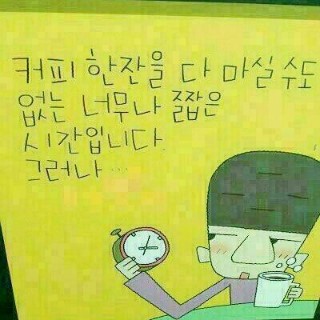 커피 한잔을 다 마실 수도
없는 너무나 짧은
시간입니다.
그러나 …